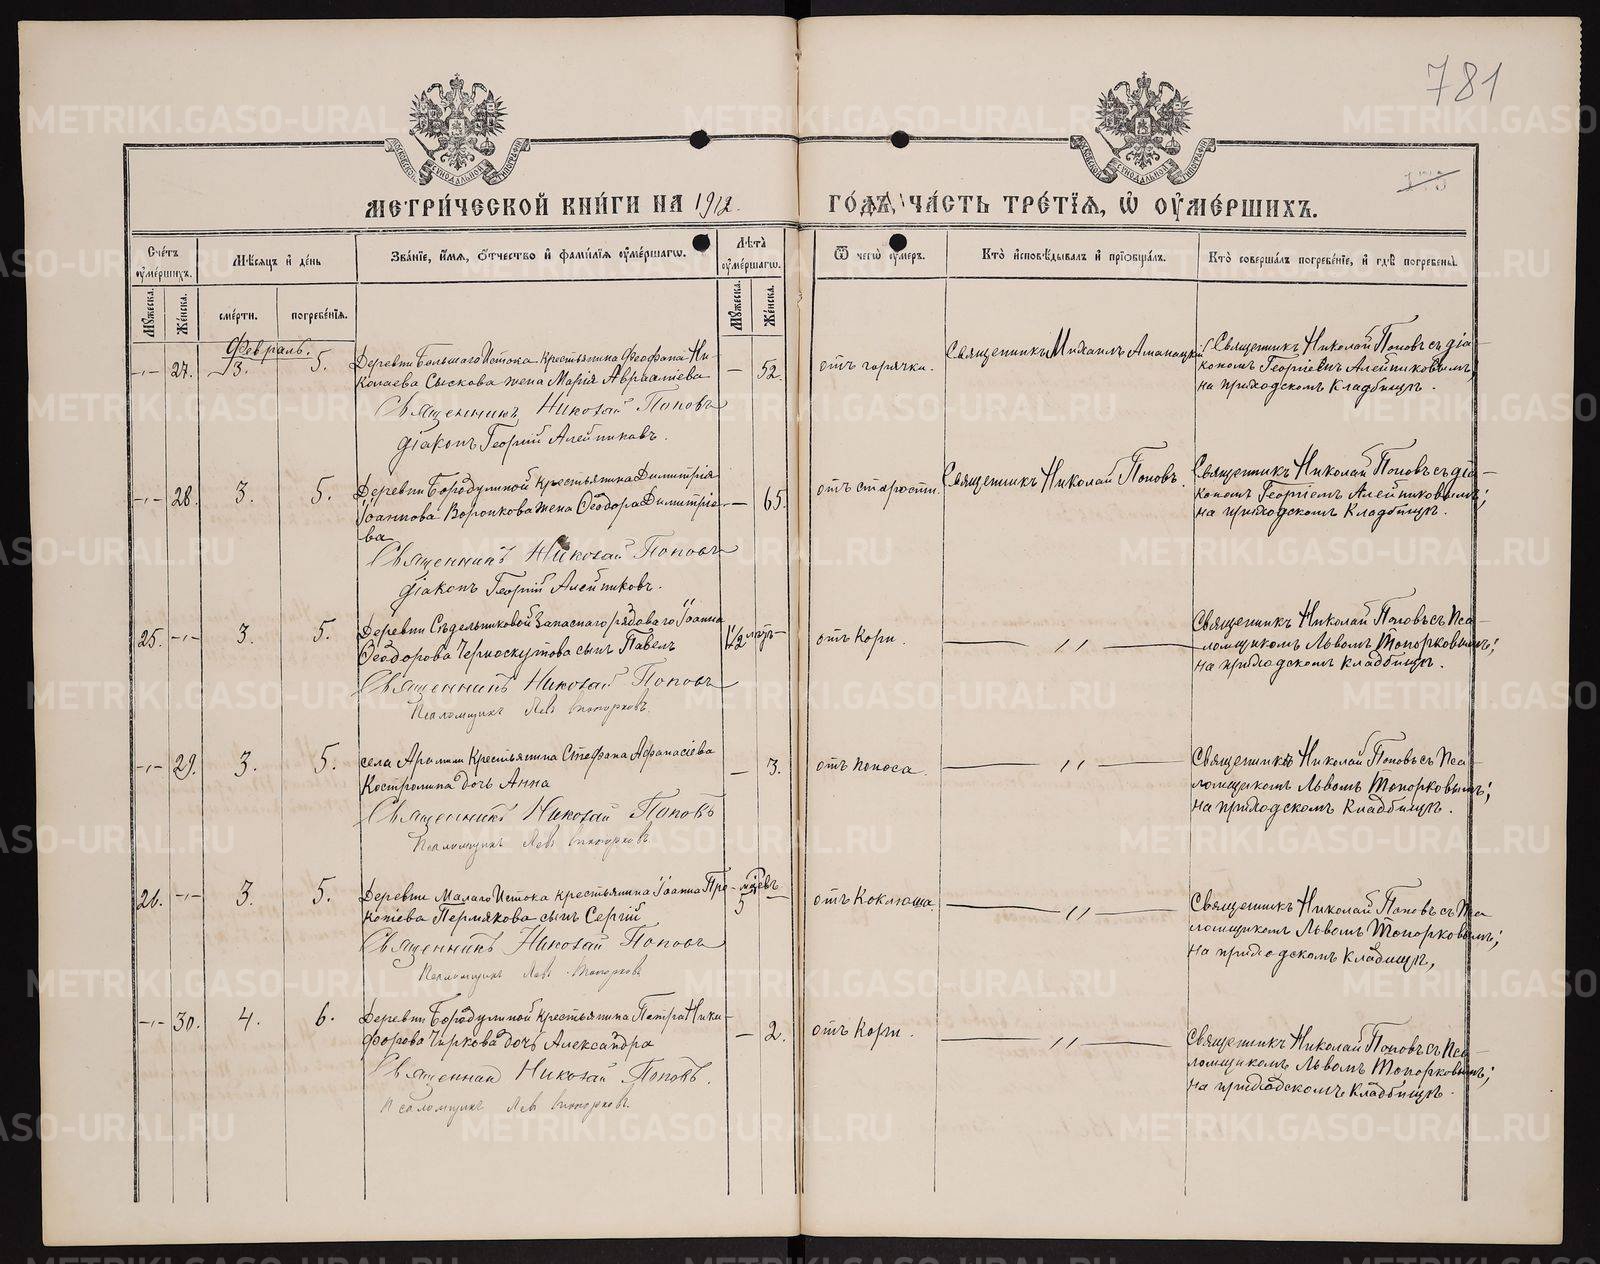 781
МЕТРИ́ЧЕСКОЙ КНИ́ГИ НА 1912. ГО́ДЪ, ЧА́СТЬ ТРЕ́ТЇЯ, Ѡ ОУМЕ́РШИХЪ.
Сче́тъ оуме́ршихъ. Мѣ́сяцъ и день Зва́нїе, и́мя, о́тчество и фами́лїя оуме́ршагѡ. Лѣ́та оуме́ршагѡ.
Ѿ чегѡ̀ оу́меръ. Кто̀ исповѣ́дывалъ и прїѡбща́лъ. Кто̀ соверша́лъ погребе́нїе, и гдѣ̀ погребены̀.
Мꙋ́жеска. Же́нска. сме́рти. погребе́нїя. Мꙋ́жеска. Же́нска.
Февраль.
-„- 27. 3. 5. Деревни Большаго Истока крестьянина Феофана Ни-
колаева Сыскова жена Марія Авраміева — 52.
Священникъ Николай Поповъ
діаконъ Георгій Алейниковъ.
отъ горячки. Священникъ Михаилъ Священникъ Николай Поповъ съ діа-
кономъ Георгіемъ Алейниковымъ;
на приходскомъ кладбищѣ.
-„- 28. 3. 5. Деревни Бородулиной крестьянина Димитрія
Іоаннова Воронкова жена Ѳеодора Димитріе-
ва — 65.
Священникъ Николай Поповъ
діаконъ Георгій Алейниковъ.
отъ старости. Священникъ Николай Поповъ. Священникъ Николай Поповъ съ діа-
кономъ Георгіемъ Алейниковымъ;
на приходскомъ кладбищѣ.
25. -„- 3. 5. Деревни Сѣдельниковой запаснаго рядоваго Іоанна
Ѳеодорова Черноскутова сынъ Павелъ 1/2 —
Священникъ Николай Поповъ
Псаломщикъ Левъ Топорковъ.
отъ кори. — „ — Священникъ Николай Поповъ съ Пса-
ломщикомъ Львомъ Топорковымъ;
на приходскомъ кладбищѣ.
-„- 29. 3. 5. села Арамили крестьянина Стефана Афанасіева
Костромина дочь Анна — 3.
Священникъ Николай Поповъ
Псаломщикъ Левъ Топорковъ.
отъ поноса. — „ — Священникъ Николай Поповъ съ Пса-
ломщикомъ Львомъ Топорковымъ;
на приходскомъ кладбищѣ.
26. -„- 3. 5. Деревни Малаго Истока крестьянина Іоанна Про-
копіева Пермякова сынъ Сергій 5 мцевъ —
Священникъ Николай Поповъ
Псаломщикъ Левъ Топорковъ
отъ коклюша. — „ — Священникъ Николай Поповъ съ Пса
ломщикомъ Львомъ Топорковымъ;
на приходскомъ кладбищѣ,
-„- 30. 4. 6. Деревни Бородулиной крестьянина Петра Ники-
форова Чиркова дочь Александра — 2.
Священник Николай Поповъ.
Псаломщикъ Левъ Топорковъ.
отъ кори. — „ — Священникъ Николай Поповъ съ Пса-
ломщикомъ Львомъ Топорковымъ;
на приходскомъ кладбищѣ.
METRIKI.GASO-URAL.RU